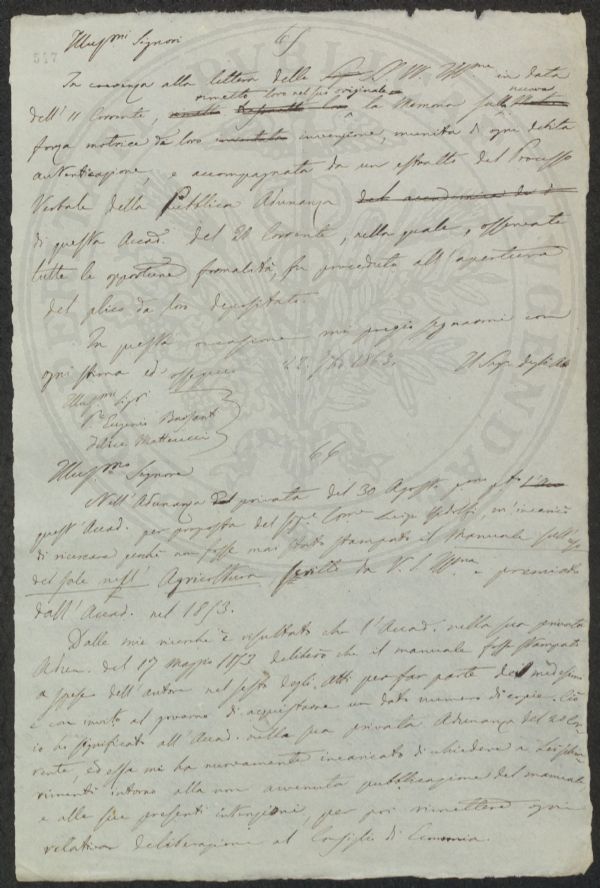 517
65
Illus.mi Signori
In coerenza alla lettera delle LL. SS. Ill.me in data
rimetto loro nel suo originale nuova
dell' 11 Corrente, la Memoria sulla
forza motrice da loro invenzione, munita di ogni debita
autenticazione, e accompagnata da un estratto del Processo
Verbale della Pubblica Adunanza
di questa Accad. del 20 Corrente, nella quale, osservate
tutte le opportune formalità, fu proceduto all'apertura
del plico da loro depositato.
In questa occasione mi pregio segnarmi con
ogni stima ed ossequio 22 1863. Il Seg. degli Atti
Illus.mi Sig.i
P.e Eugenio Barsanti
Felice Matteucci
66
Illus.mo Signore
Nell'Adunanza privata del 30 Agosto
quest'Accad. per proposta del Sig.e Luigi Ridolfi, m'incaricò
di ricercare perchè non fosse mai stato stampato il Manuale sull'uso
del sale nell'Agricoltura scritto da V. S. Ill.ma e premiato
dall'Accad. nel 1853.
Dalle mie ricerche è risultato che l'Accad. nella sua privata
Adun. del 17 Maggio 1853 deliberò che il manuale fosse stampato
a spese dell'autore nel sesto degli Atti per far parte dei medesimi
e con invito al governo di acquistarne un dato numero di copie. Ciò
io ho significato all'Accad. nella sua privata Adunanza del 20 Cor-
rente, ed essa mi ha nuovamente incaricato di chiedere a Lei schia-
rimenti intorno alla non avvenuta pubblicazione del manuale
e alle sue presenti intenzioni, per poi rimettere ogni
relativa deliberazione al Consiglio di Economia.